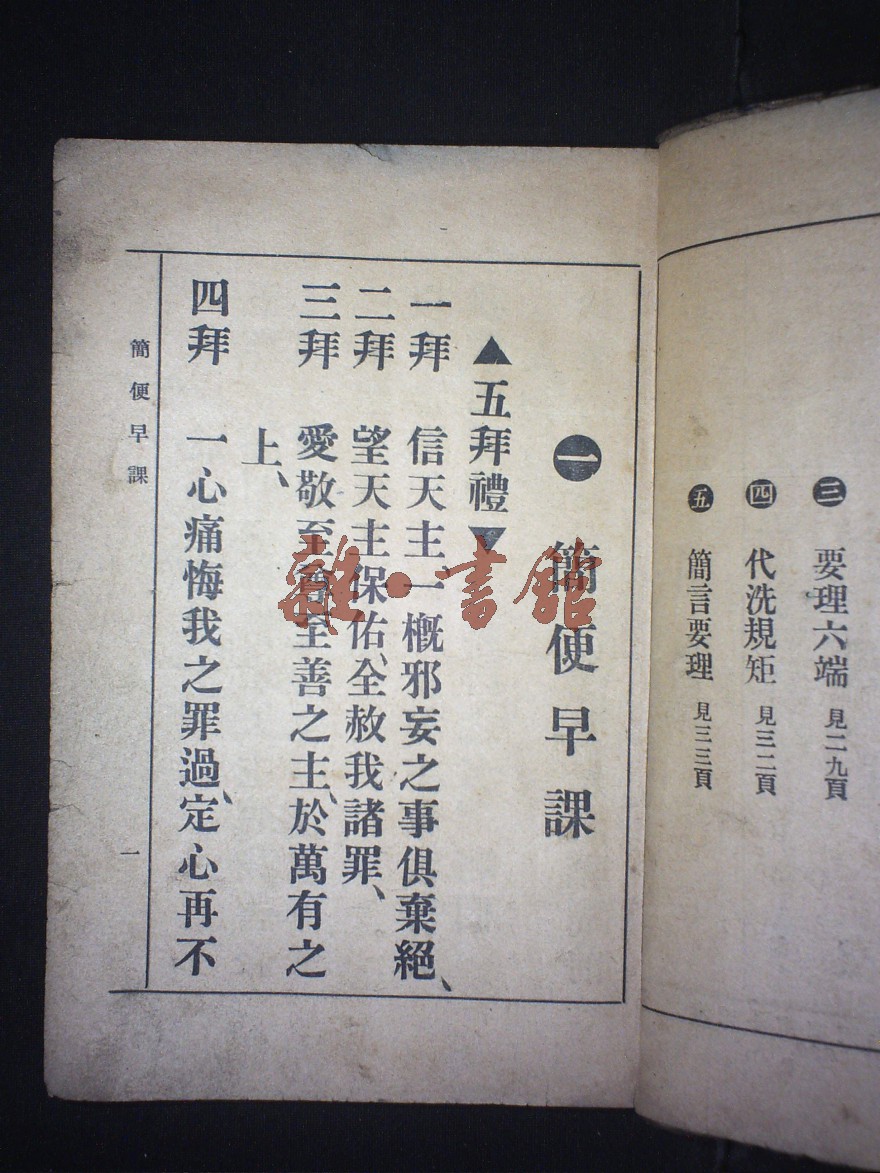 三 要理六端 見二九頁
四 代洗規矩 見三二頁
五 簡言要理 見三三頁
一 簡便早課
▲五拜禮▼
一拜 信天主、一概邪妄之事俱棄絕、
二拜 望天主保佑、全赦我諸罪、
三拜 愛敬至尊至善之主、於萬有之
上、
四拜 一心痛悔我之罪過、定心再不
簡便早課 一
雜·書館